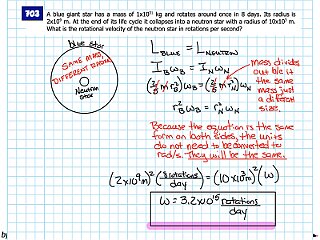 703 A blue giant star has a mass of 1x10³¹ kg and rotates around once in 8 days. Its radius is
2x10⁹ m. At the end of its life cycle it collapses into a neutron star with a radius of 10x10³ m.
What is the rotational velocity of the neutron star in rotations per second?
blue star
SAME MASS,
DIFFERENT RADIUS
Neutron
star
L BLUE = L NEUTRON
I_B ω_B = I_N ω_N
(2/5 m r_B²) ω_B = (2/5 m r_N²) ω_N
r_B² ω_B = r_N² ω_N
mass divides
out b/c it
the same
mass just
a different
size.
Because the equation is the same
form on both sides, the units
do not need to be converted to
rad/s. They will be the same.
(2x10⁹m)² (8 rotations/day) = (10x10³m)² (ω)
ω = 3.2x10¹⁵ rotations/day
by